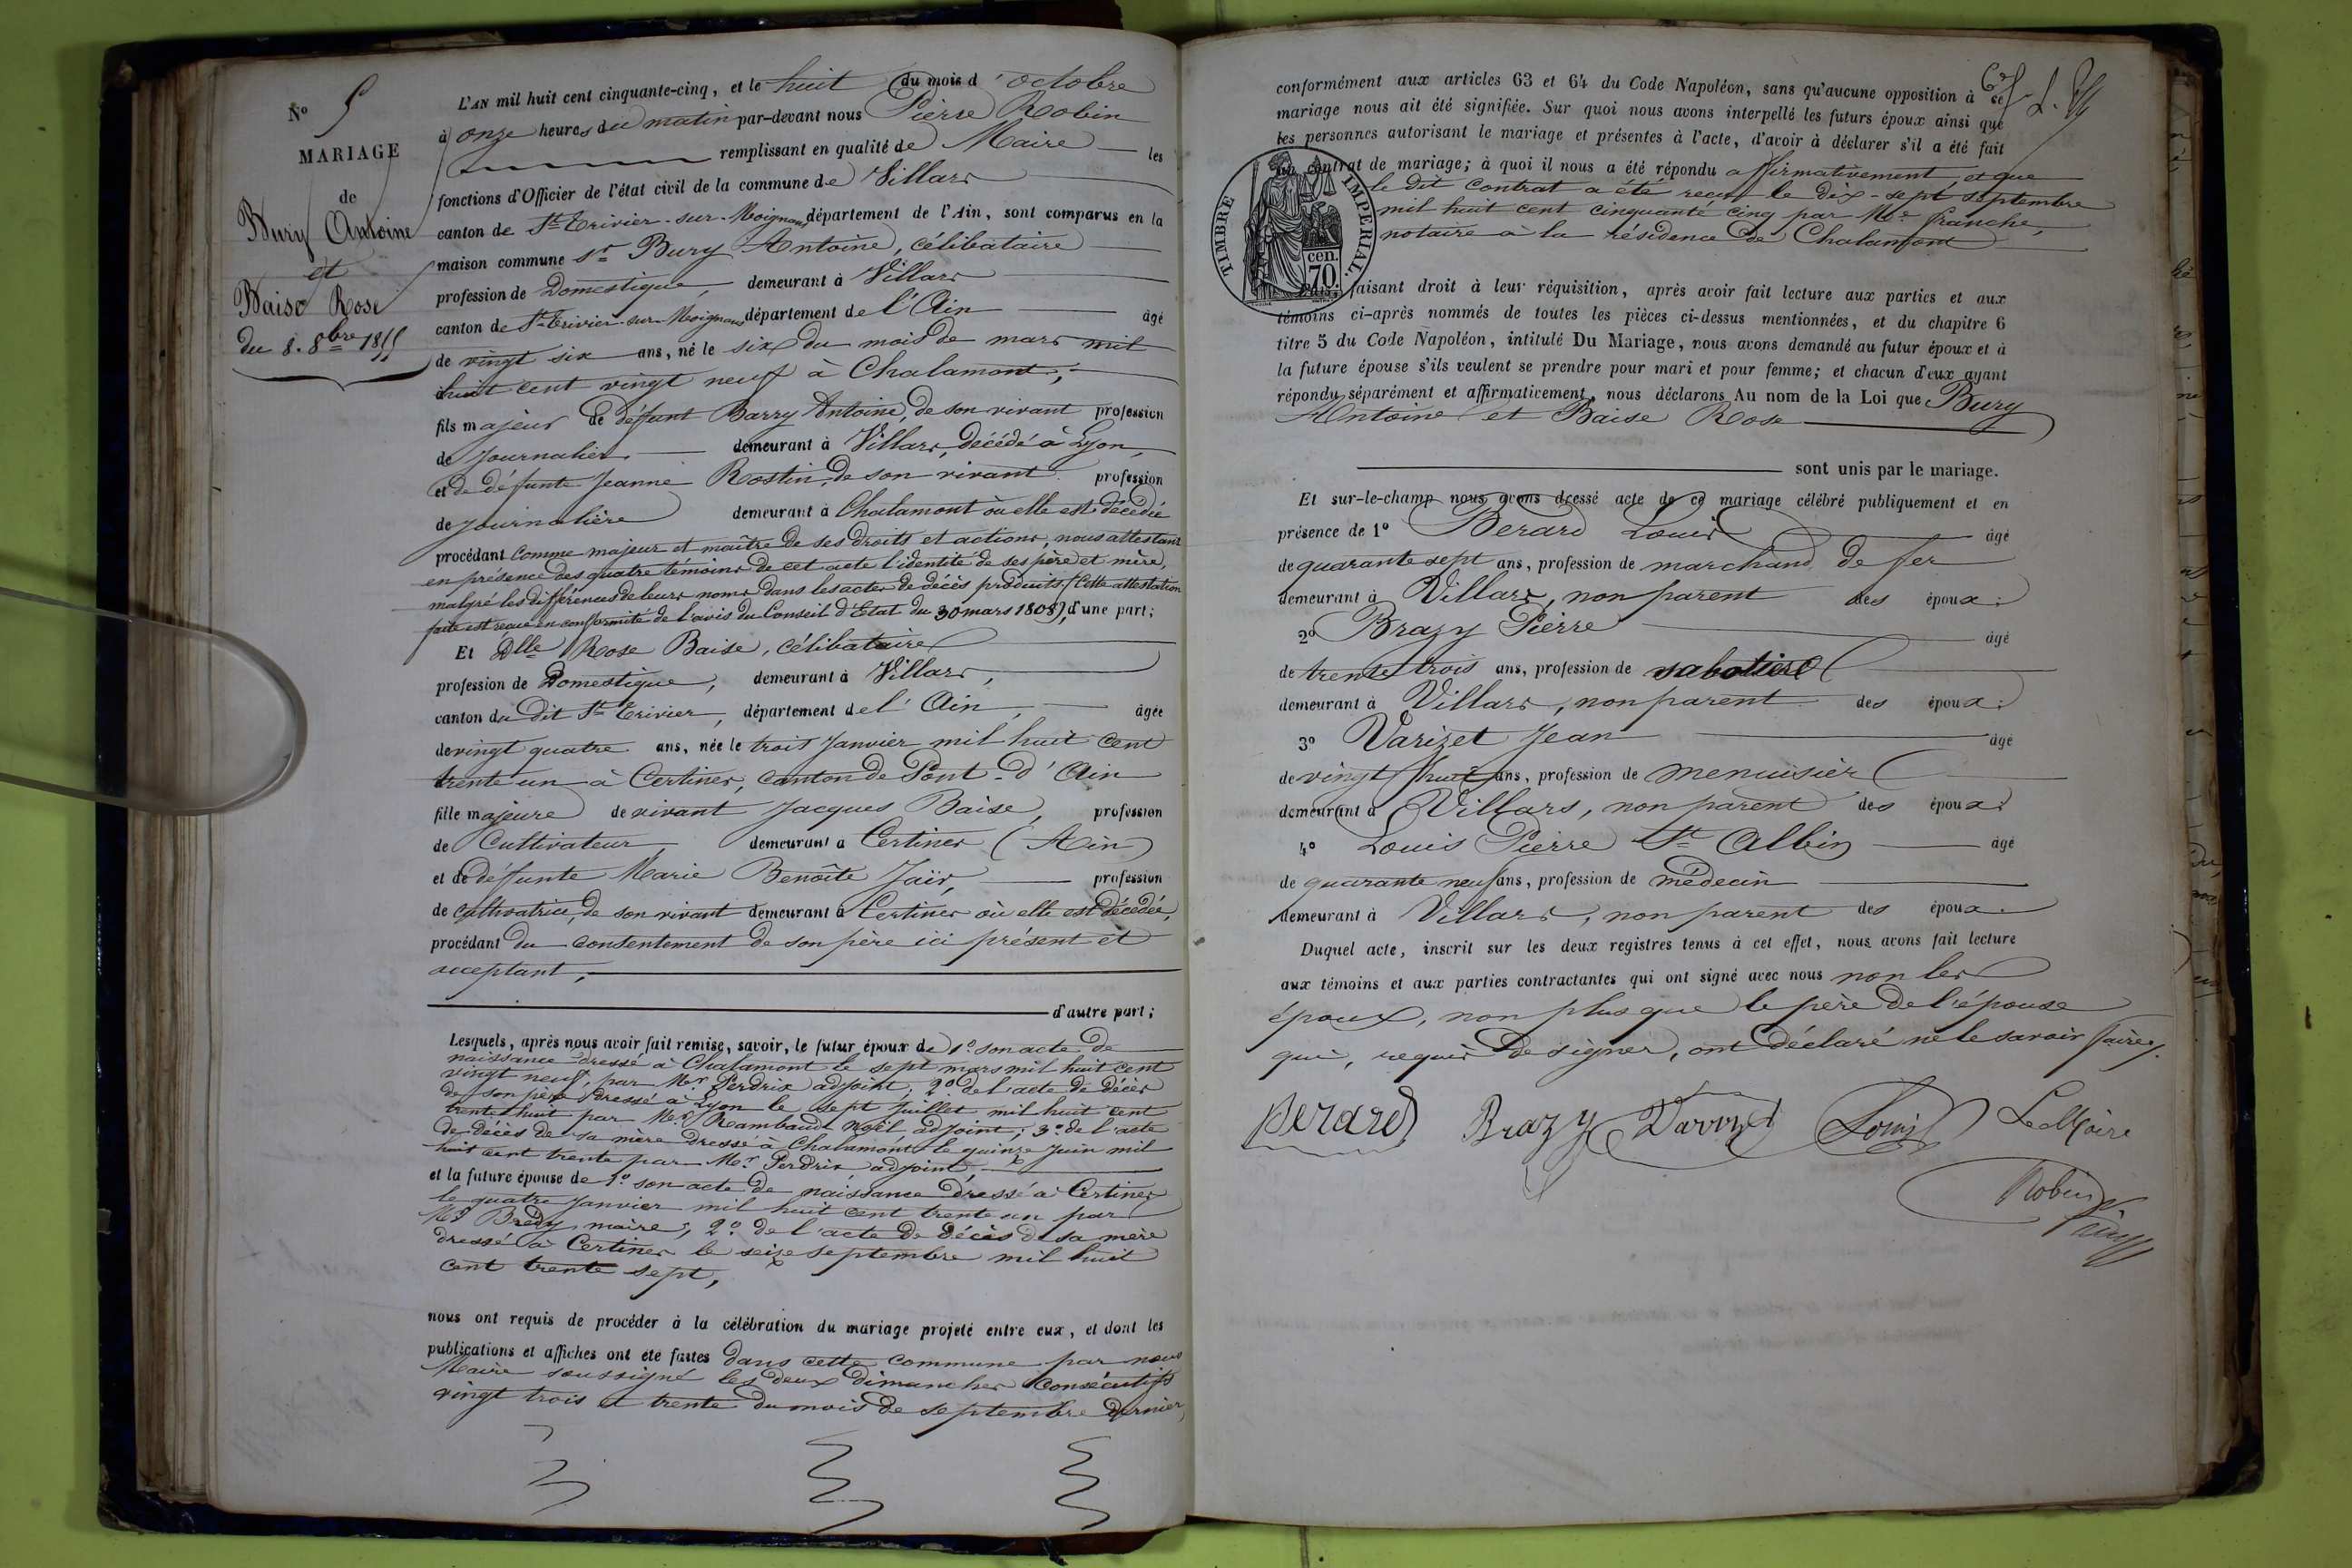 N° 5
MARIAGE
de
Bury Antoine
et
Baise Rose
du 8. 8bre 1855
L'AN mil huit cent cinquante-cinq, et le huit du mois d'octobre
à onze heures du matin par-devant nous Pierre Robin
remplissant en qualité de Maire les
fonctions d'Officier de l'état civil de la commune de Villars
canton de St Trivier-sur-Moignans département de l'Ain, sont comparus en la
maison commune Sr Bury Antoine, célibataire
profession de Domestique, demeurant à Villars
canton de St Trivier-sur-Moignans département de l'Ain âgé
de vingt six ans, né le six du mois de mars mil
huit cent vingt neuf à Chalamont,
fils majeur de défunt Barry Antoine, de son vivant profession
de journalier demeurant à Villars, décédé à Lyon,
et de défunte Jeanne Rostin, de son vivant profession
de journalière demeurant à Chalamont où elle est décédée
procédant comme majeur et maître de ses droits et actions, nous attestant
en présence des quatre témoins de cet acte l'identité de ses père et mère,
malgré les différences de leurs noms dans les actes de décès produits (Cette attestation
faite est reçue en conformité de l'avis du Conseil d'Etat du 30 mars 1808), d'une part;
Et Dlle Rose Baise, célibataire
profession de Domestique, demeurant à Villars,
canton du dit St Trivier, département de l'Ain, âgée
de vingt quatre ans, née le trois Janvier mil huit cent
trente un à Certines, canton de Pont-d'Ain
fille majeure de vivant Jacques Baise, profession
de Cultivateur demeurant à Certines (Ain)
et de défunte Marie Benoîte Jaïr, profession
de cultivatrice, de son vivant demeurant à Certines où elle est décédée,
procédant du consentement de son père ici présent et
acceptant,
d'autre part;
Lesquels, après nous avoir fait remise, savoir, le futur époux de 1° son acte de
naissance dressé à Chalamont le sept mars mil huit cent
vingt neuf, par Mr Perdrix adjoint, 2° de l'acte de décès
de son père dressé à Lyon le sept juillet mil huit cent
trente huit par Mr Rambaud Noël adjoint; 3° de l'acte
de décès de sa mère dressé à Chalamont le quinze Juin mil
huit cent trente par Mr Perdrix adjoint
et la future épouse de 1° son acte de naissance dressé à Certines
le quatre Janvier mil huit cent trente un par
Mr Bredy, maire, 2° de l'acte de décès de sa mère
dressé à Certines le seize septembre mil huit
cent trente sept,
nous ont requis de procéder à la célébration du mariage projeté entre eux, et dont les
publications et affiches ont été faites dans cette commune par nous
Maire soussigné les deux dimanches consécutifs
vingt trois et trente du mois de septembre dernier,
conformément aux articles 63 et 64 du Code Napoléon, sans qu'aucune opposition à ce
mariage nous ait été signifiée. Sur quoi nous avons interpellé les futurs époux ainsi que
les personnes autorisant le mariage et présentes à l'acte, d'avoir à déclarer s'il a été fait
un contrat de mariage; à quoi il nous a été répondu affirmativement et que
le dit contrat a été reçu le dix-sept septembre
mil huit cent cinquante cinq par Me franche,
notaire à la résidence de Chalamont
TIMBRE IMPERIAL.
cen.
70
Puis, faisant droit à leur réquisition, après avoir fait lecture aux parties et aux
témoins ci-après nommés de toutes les pièces ci-dessus mentionnées, et du chapitre 6
titre 5 du Code Napoléon, intitulé Du Mariage, nous avons demandé au futur époux et à
la future épouse s'ils veulent se prendre pour mari et pour femme; et chacun d'eux ayant
répondu séparément et affirmativement, nous déclarons Au nom de la Loi que Bury
Antoine et Baise Rose
sont unis par le mariage.
Et sur-le-champ nous avons dressé acte de ce mariage célébré publiquement et en
présence de 1° Berard Louis âgé
de quarante sept ans, profession de marchand de fer
demeurant à Villars, non parent des époux:
2° Brazy Pierre âgé
de trente trois ans, profession de sabotier
demeurant à Villars, non parent des époux:
3° Varizet Jean âgé
de vingt huit ans, profession de menuisier
demeurant à Villars, non parent des époux:
4° Louis Pierre St Albin âgé
de quarante neuf ans, profession de médecin
demeurant à Villars, non parent des époux.
Duquel acte, inscrit sur les deux registres tenus à cet effet, nous avons fait lecture
aux témoins et aux parties contractantes qui ont signé avec nous non les
époux, non plus que le père de l'épouse
qui, requis de signer, ont déclaré ne le savoir faire.
Berard Brazy Varizet Louis Le Maire
Robin